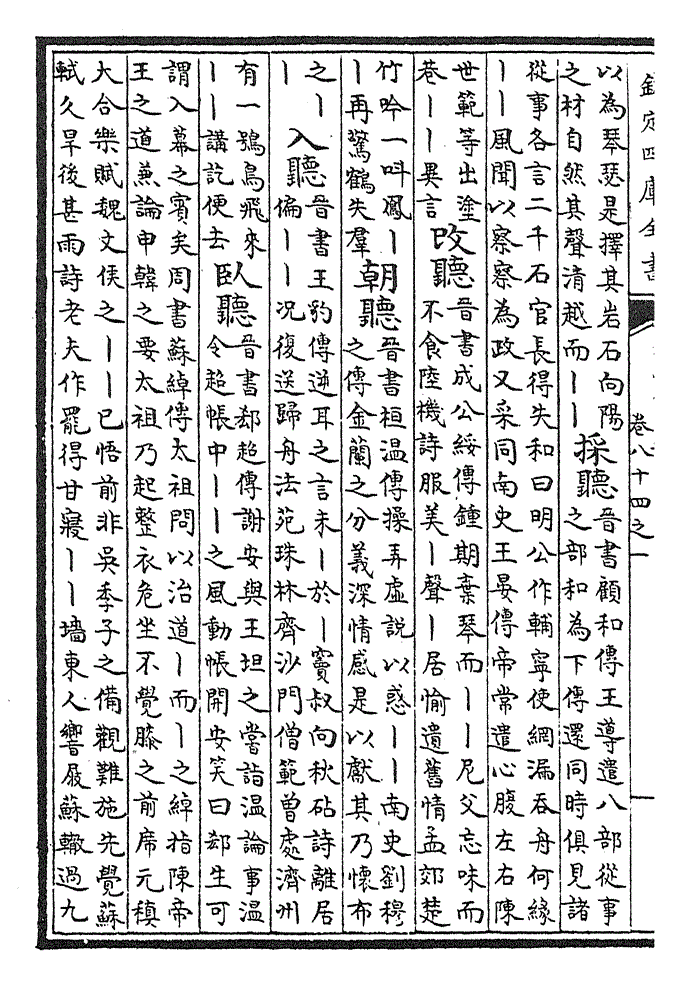 欽定四庫全書
卷八十四之一
以為琴瑟是擇其岩石向陽
之材自然其聲清越而丨丨
採聽
晉書顧和傳王導遣八部從事
之部和為下傳還同時俱見諸
從事各言二千石官長得失和曰明公作輔寧使網漏吞舟何緣
丨丨風聞以察察為政又采同南史王晏傳帝常遣心腹左右陳
世範等出塗
巷丨丨異言
改聽
晉書成公綏傳鍾期棄琴而丨丨尼父忘味而
不食陸機詩服美丨聲丨居愉遺舊情孟郊楚
竹吟一呌鳳丨
丨再驚鶴失羣
朝聽
晉書桓温傳操弄虛說以惑丨丨南史劉穆
之傳金蘭之分義深情感是以獻其乃懷布
之丨
丨
入聽
晉書王豹傳逆耳之言未丨於丨竇叔向秋砧詩離居
偏丨丨況復送歸舟法苑珠林齊沙門僧範曾處濟州
有一鴞鳥飛來
丨丨講訖便去
臥聽
晉書郄超傳謝安與王坦之嘗詣温論事温
令超帳中丨丨之風動帳開安笑曰郄生可
謂入幕之賓矣周書蘇綽傳太祖問以治道丨而丨之綽指陳帝
王之道兼論申韓之要太祖乃起整衣危坐不覺膝之前席元稹
大合樂賦魏文侯之丨丨已悟前非吳季子之備觀難施先覺蘇
軾久旱後甚雨詩老夫作罷得甘寢丨丨墻東人響屐蘇轍過九